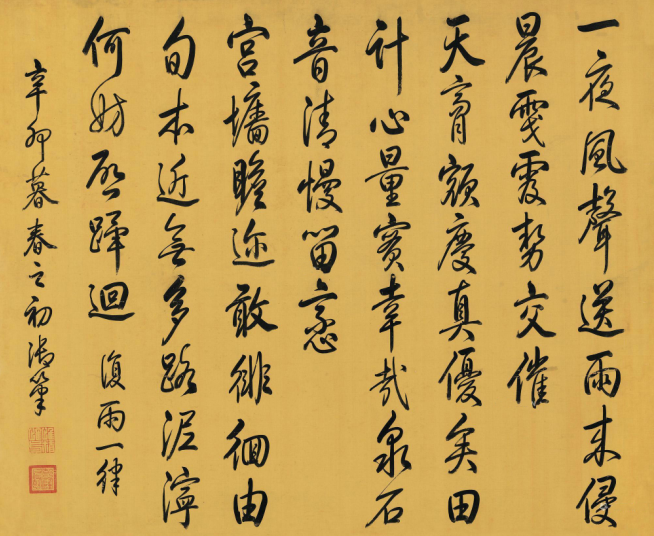 一夜風聲送雨來侵
晨勢交催
天膏額慶真優矣田
計心量實幸哉泉石
音清慢留戀
宮墻瞻邇敢徘徊由
旬本近無多路泥濘
何妨啟蹕迴 復雨一律
辛卯暮春之初御筆